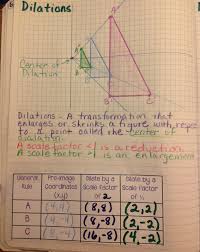 Dilations
A
Center of
Dilation
B
C
Dilations - A transformation that
enlarges or shrinks a figure with respect
to a point called the center of
dilation.
A scale factor <1 is a reduction.
A scale factor >1 is an enlargement.
General Rule | Pre-image Coordinates (x,y) | Dilate by a Scale Factor of 2 | Dilate by a Scale Factor of ½
A | (4,4) | (8,8) | (2,2)
B | (4,-4) | (8,-8) | (2,-2)
C | (8,-4) | (16,-8) | (4,-2)